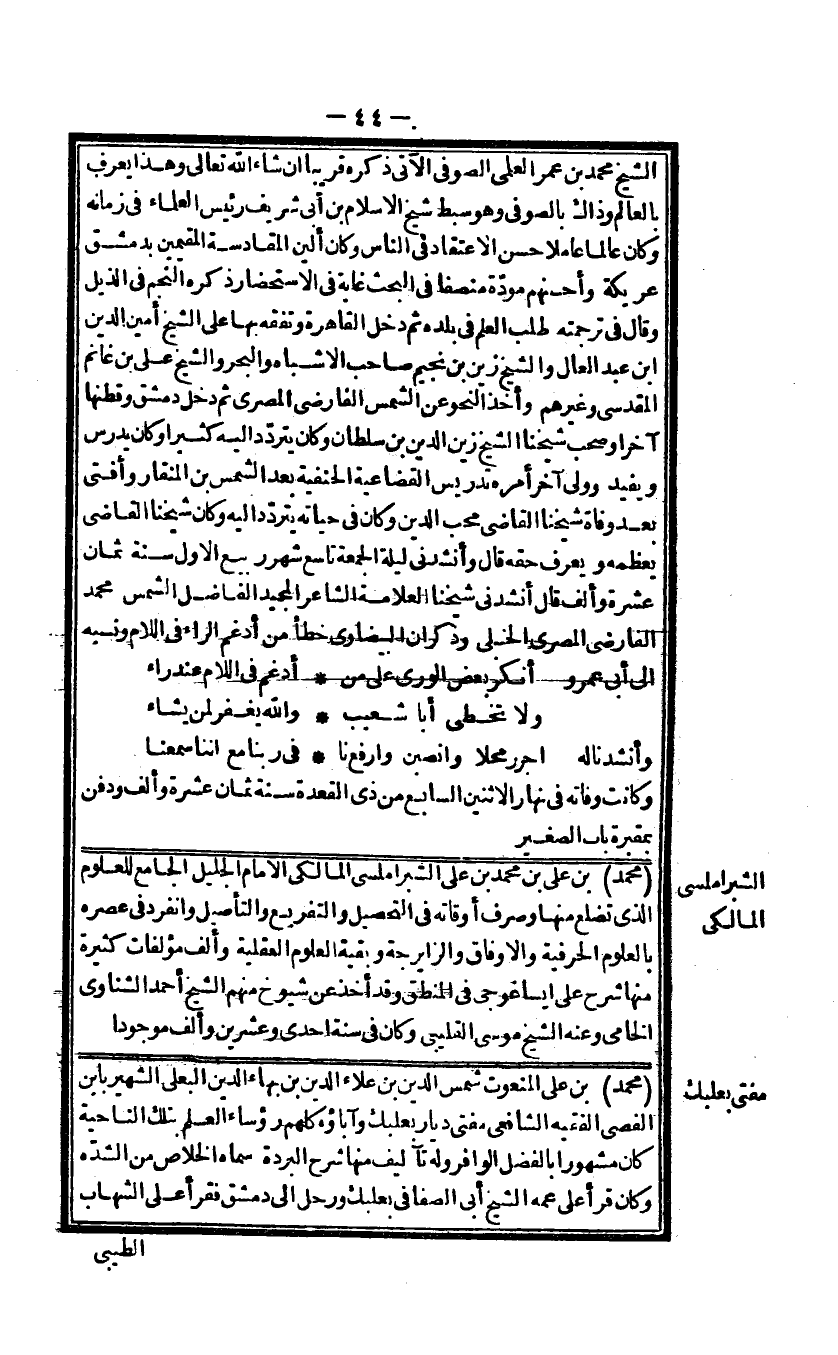 — ٤٤ —
الشيخ محمد بن عمر العلمى الصوفى الآتى ذكره قريبا ان شاء الله تعالى وهذا يعرف
بالعالم وذاك بالصوفى وهو سبط شيخ الاسلام بن أبى شريف رئيس العلماء فى زمانه
وكان عالما عاملا حسن الاعتقاد فى الناس وكان ألين المقادسة المقيمين بدمشق
عريكة وأحسنهم مودّة منصفا فى البحث غاية فى الاستحضار ذكره النجم فى الذيل
وقال فى ترجمته طلب العلم فى بلده ثم دخل القاهرة وتفقه بها على الشيخ أمين الدين
ابن عبد العال والشيخ زين بن نجيم صاحب الاشباه والبحر والشيخ على بن غانم
المقدسى وغيرهم وأخذ النحو عن الشمس الفارضى المصرى ثم دخل دمشق وقطنها
آخرا وصحب شيخنا الشيخ زين الدين بن سلطان وكان يتردّد اليه كثيرا وكان يدرس
ويفيد وولى آخر أمره تدريس القضاعية الحنفية بعد الشمس بن المنقار وأفتى
بعد وفاة شيخنا القاضى محب الدين وكان فى حياته يتردّد اليه وكان شيخنا القاضى
يعظمه ويعرف حقه قال وأنشدنى ليلة الجمعة تاسع شهر ربيع الاول سنة ثمان
عشرة وألف قال أنشدنى شيخنا العلامة الشاعر المجيد الفاضل الشمس محمد
الفارضى المصرى الحنبلى وذكر ان البيضاوى خطأ من أدغم الراء فى اللام ونسبه
الى أبى عمرو أنكر بعض الورى على من * أدغم فى اللام عند راء
ولا تخطى أبا شعيب * والله يغفر لمن يشاء
وأنشدنا له اجرر محلا وانصبن وارفعنا * فى ربنا مع اننا سمعنا
وكانت وفاته فى نهار الاثنين السابع من ذى القعدة سنة ثمان عشرة وألف ودفن
بمقبرة باب الصغير
الشبراملسى
المالكى
(محمد) بن على بن محمد بن على الشبراملسى المالكى الامام الجليل الجامع للعلوم
الذى تضلع منها وصرف أوقاته فى التحصيل والتفريع والتأصيل وانفرد فى عصره
بالعلوم الحرفية والاوفاق والزايرجة وبقية العلوم العقلية وألف مؤلفات كثيرة
منها شرح على ايساغوجى فى المنطق وقد أخذ عن شيوخ منهم الشيخ أحمد الشناوى
الخامى وعنه الشيخ موسى القليبى وكان فى سنة احدى وعشرين وألف موجودا
مفتى بعلبك
(محمد) بن على المنعوت شمس الدين بن علاء الدين بن بهاء الدين البعلى الشهير بابن
الفصى الفقيه الشافعى مفتى ديار بعلبك وآباؤه كلهم رؤساء العلم بتلك الناحية
كان مشهورا بالفضل الوافر وله تآليف منها شرح البردة سماه الخلاص من الشدّه
وكان قرأ على عمه الشيخ أبى الصفا فى بعلبك ورحل الى دمشق فقرأ على الشهاب
الطيبى